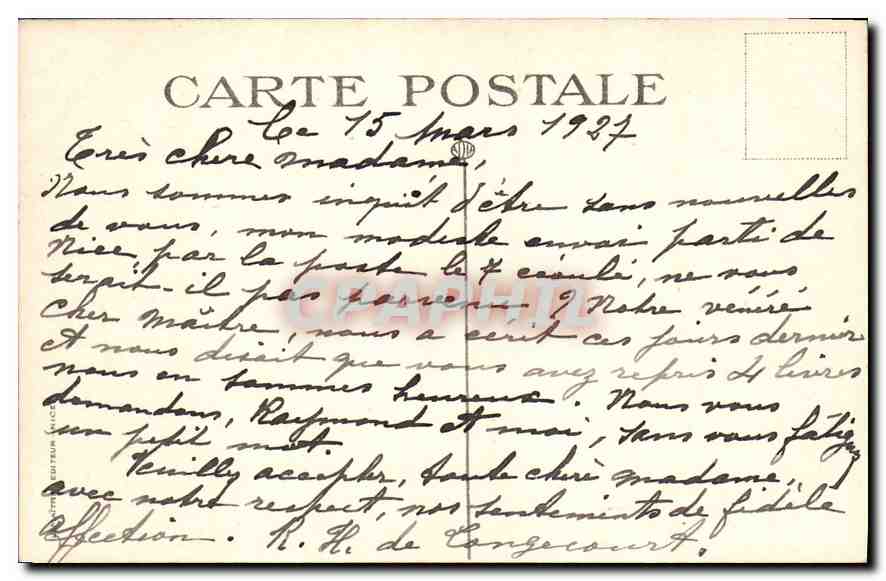 CARTE POSTALE
Ce 15 mars 1927
Très chère madame,
Nous sommes inquièt d'être sans nouvelles
de vous, mon modeste envoi parti de
Nice, par la poste le 7 écoulé, ne vous
serait-il pas parvenu ? Notre vénéré
cher Maître, nous a écrit ces jours dernier
et nous disait que vous avez repris 4 livres
nous en sommes heureux. Nous vous
demandons, Raymond et moi, sans vous fatiguer
un petit mot
Veuilly accepter, toute chère madame,
avec notre respect, nos sentiments de fidèle
affection. R. H. de Longecourt.
CPAPHIL
EDITEUR NICE